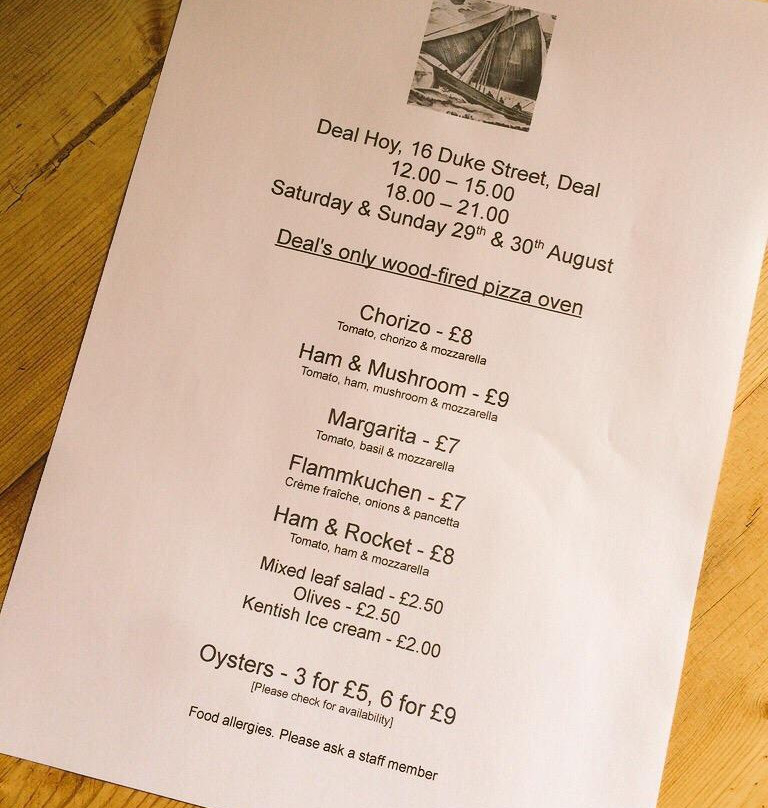 Deal Hoy, 16 Duke Street, Deal
12.00 – 15.00
18.00 – 21.00
Saturday & Sunday 29th & 30th August
Deal's only wood-fired pizza oven
Chorizo - £8
Tomato, chorizo & mozzarella
Ham & Mushroom - £9
Tomato, ham, mushroom & mozzarella
Margarita - £7
Tomato, basil & mozzarella
Flammkuchen - £7
Crème fraîche, onions & pancetta
Ham & Rocket - £8
Tomato, ham & mozzarella
Mixed leaf salad - £2.50
Olives - £2.50
Kentish Ice cream - £2.00
Oysters - 3 for £5, 6 for £9
[Please check for availability]
Food allergies. Please ask a staff member